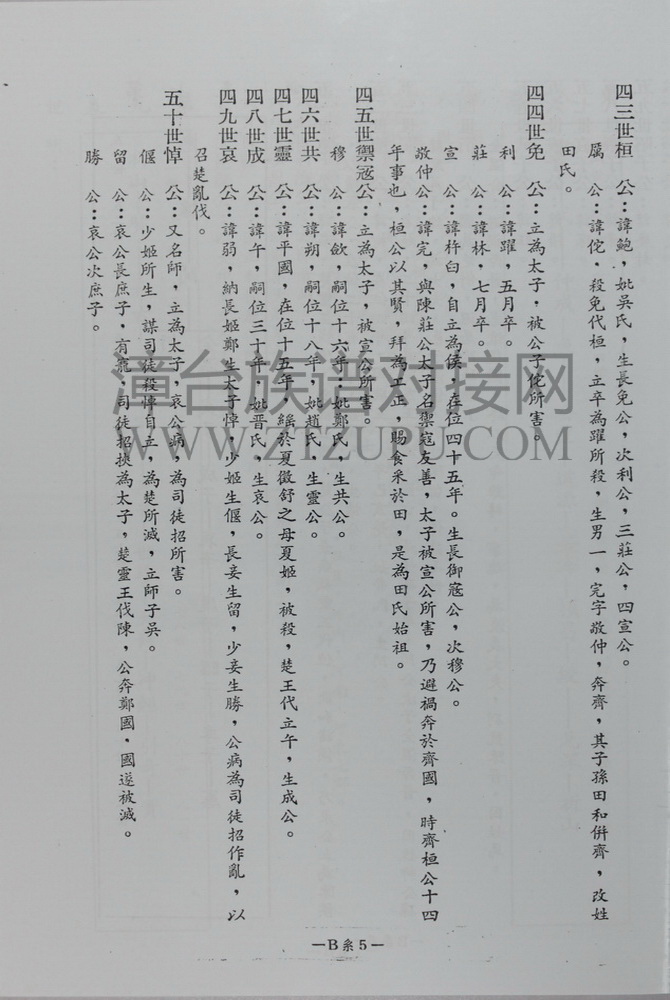 四三世桓　公：諱鮑，妣吳氏，生長免公，次利公，三莊公，四宣公。
厲　公：諱佗．殺免代桓，立卒為躍所殺，生男一，完字敬仲，奔齊，其子孫田和併齊，改姓
田氏。
四四世免　公：立為太子，被公子佗所害。
利　公：諱躍，五月卒。
莊　公：諱林，七月卒。
宣　公：諱杵臼，自立為侯，在位四十五年。生長御寇公，次穆公。
敬仲　公：諱完，與陳莊公太子名禦寇友善，太子被宣公所害，乃避禍奔於齊國，時齊桓公十四
年事也，桓公以其賢，拜為工正，賜食采於田，是為田氏始祖。
四五世禦寇公：立為太子，被宣公所害。
穆　公：諱欵，嗣位十六年：妣鄭氏，生共公。
四六世共　公：諱朔，嗣位十八年，妣趙氏，生靈公。
四七世靈　公：諱平國，在位十五年，繇於夏徵舒之母夏姬，被殺，楚王代立午，生成公。
四八世成　公：諱午，嗣位三十年，妣晋氏，生哀公。
四九世哀　公：諱弱，納長姬鄭生太子悼，少姬生偃，長妾生留，少妾生勝，公病為司徒招作亂，以
召楚亂伐。
五十世悼　公：又名師，立為太子，哀公病，為司徒招所害。
偃　公：少姬所生，謀司徒殺悼自立，為楚所滅，立師子吳。
留　公：哀公長庶子，有寵，司徒招挾為太子，楚靈王伐陳，公奔鄭國．國遂被滅。
勝　公：哀公次庶子。
—B系5—
漳台族谱对接网
WWW.ZTZUPU.COM